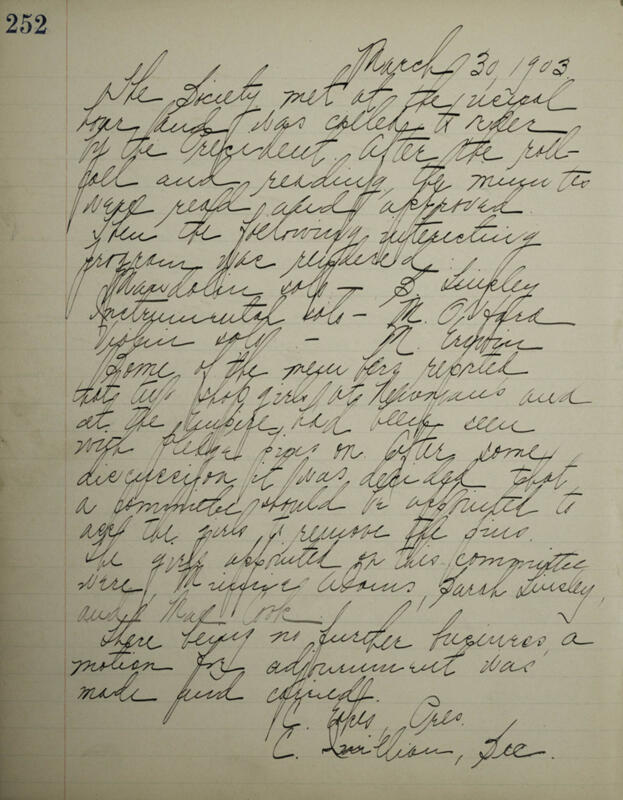 252
March 30, 1903.
The Society met at the usual
hour and was called to order
by the President. After the roll-
call and reading, the minutes
were read and approved.
Then the following interesting
program was rendered
Mandolin solo - S. Linsley
Instrumental solo - M. O'Hara
Violin solo - M. Erwin
Some of the members reported
that two shop girls at Newman's and
at the Empire had been seen
with Pledge pins on. After some
discussion it was decided that
a committee should be appointed to
ask the girls to remove the pins.
The girls appointed on this committee
were, Adams, Sarah Linsley,
and Mae Cook
There being no further business, a
motion for adjournment was
made and carried.
C. Pres.
C. Sec.